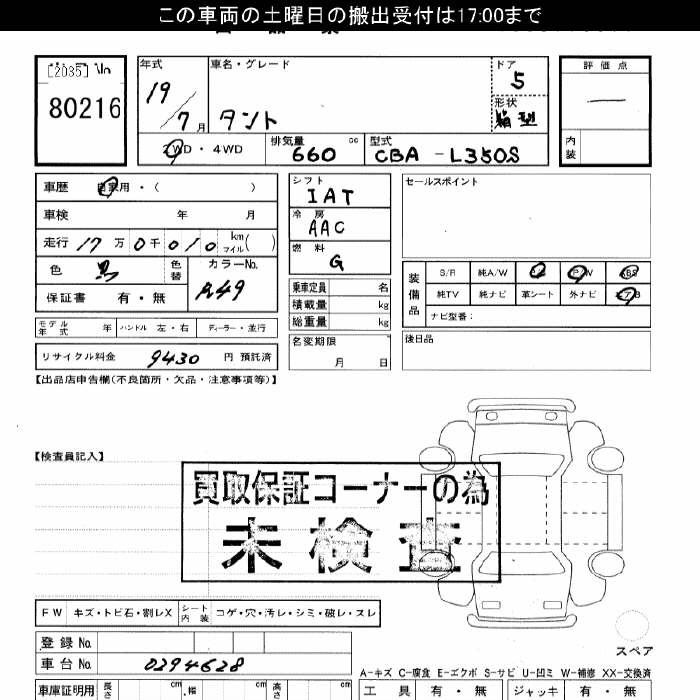 この車両の土曜日の搬出受付は17:00まで
[2035]
80216
年式 車名・グレード ドア 評価点
19/7月 タント 5
形状 箱型
2WD・4WD 排気量 660 cc 型式 CBA-L350S 内装
車歴 自家用・( ) シフト IAT セールスポイント
車検 年 月 冷房 AAC
走行 17万0千010 km マイル( ) 燃料 G
色 黒 色替 カラーNo. 装備品 S/R 純A/W P/S P/W ABS
保証書 有・無 乗車定員 名 純TV 純ナビ 革シート 外ナビ エアB
積載量 kg ナビ型番:
モデル年式 年 ハンドル 左・右 ディーラー・並行 総重量 kg
リサイクル料金 9430 円 預託済 名変期限 月 日 後日品
【出品店申告欄(不良箇所・欠品・注意事項等)】
【検査員記入】
買取保証コーナーの為
未検査
FW キズ・トビ石・割レX シート内装 コゲ・穴・汚レ・シミ・破レ・スレ
登録No.
スペア
車台No. 0294628
A-キズ C-腐食 E-エクボ S-サビ U-凹ミ W-補修 XX-交換済
車庫証明用 長さ cm 幅 cm 高さ cm 工具 有・無 ジャッキ 有・無